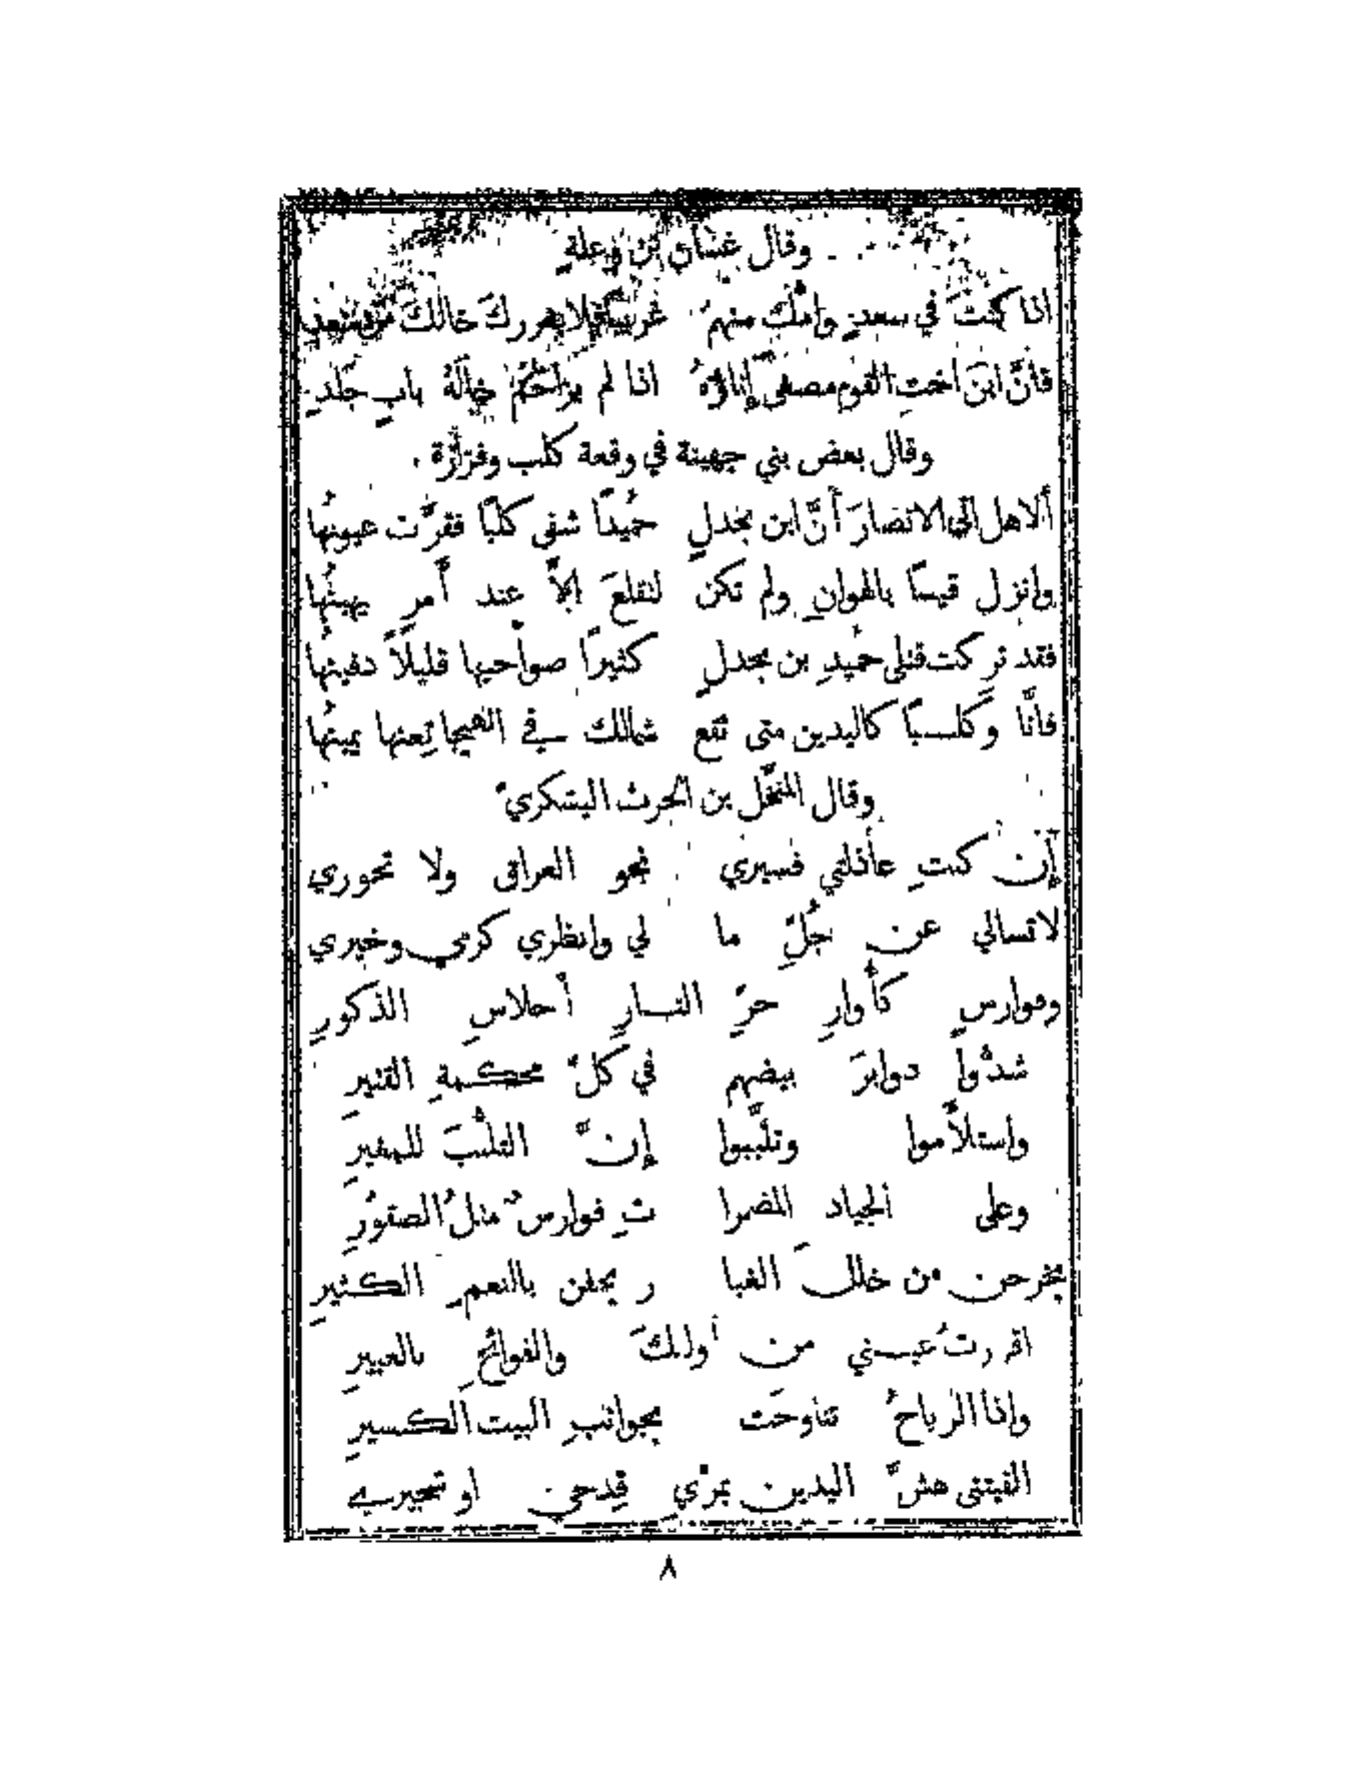 وقال غسان بن وعلة
اذا كنتَ في سعدٍ وامُّك منهمُ غريبًا فلا يغررك خالكَ من سعدِ
فانَّ ابنَ اختِ القوم مصغًى إناؤهُ اذا لم يزاحم خالهُ بابٍ جَلدِ
وقال بعض بني جهينة في وقعة كلب وفزارة
ألا هل اتى الانصارَ أنَّ ابن بجدلٍ حُميدًا شفى كلبًا فقرَّت عيونُها
وانزل قيسًا بالهوانِ ولم تكن لتقلعَ إلاَّ عند أمرٍ يهينُها
فقد تركت قتلى حُميدِ بن بجدلٍ كثيرًا صواحيها قليلاً دفينُها
فانَّا وكلبًا كاليدين متى تقع شمالك في الهيجا تعنها يمينُها
وقال المنخَّل بن الحرث اليشكري
إن كنتِ عاذلتي فسيري نحو العراق ولا تحوري
لا تسالي عن جُلِّ ما لي وانظري كرمي وخيري
وفوارسٍ كأوارِ حرِّ النارِ أحلاسِ الذكورِ
شدُّوا دوابرَ بيضهم في كلّ محكمةِ القتيرِ
واستلأموا وتلبَّبوا إنَّ التلبُّبَ للمغيرِ
وعلى الجياد المضمرا تِ فوارسٌ مثلُ الصقورِ
يخرجن من خللَ الغبا ر يجفن بالنعمِ الكثيرِ
اقررتُ عيني من أولئكَ والفوائحِ بالعبيرِ
واذا الرياحُ تناوحَت بجوانبِ البيت الكسيرِ
الفيتني هشَّ اليدين بمرْيِ قِدحي او شجيري
٨